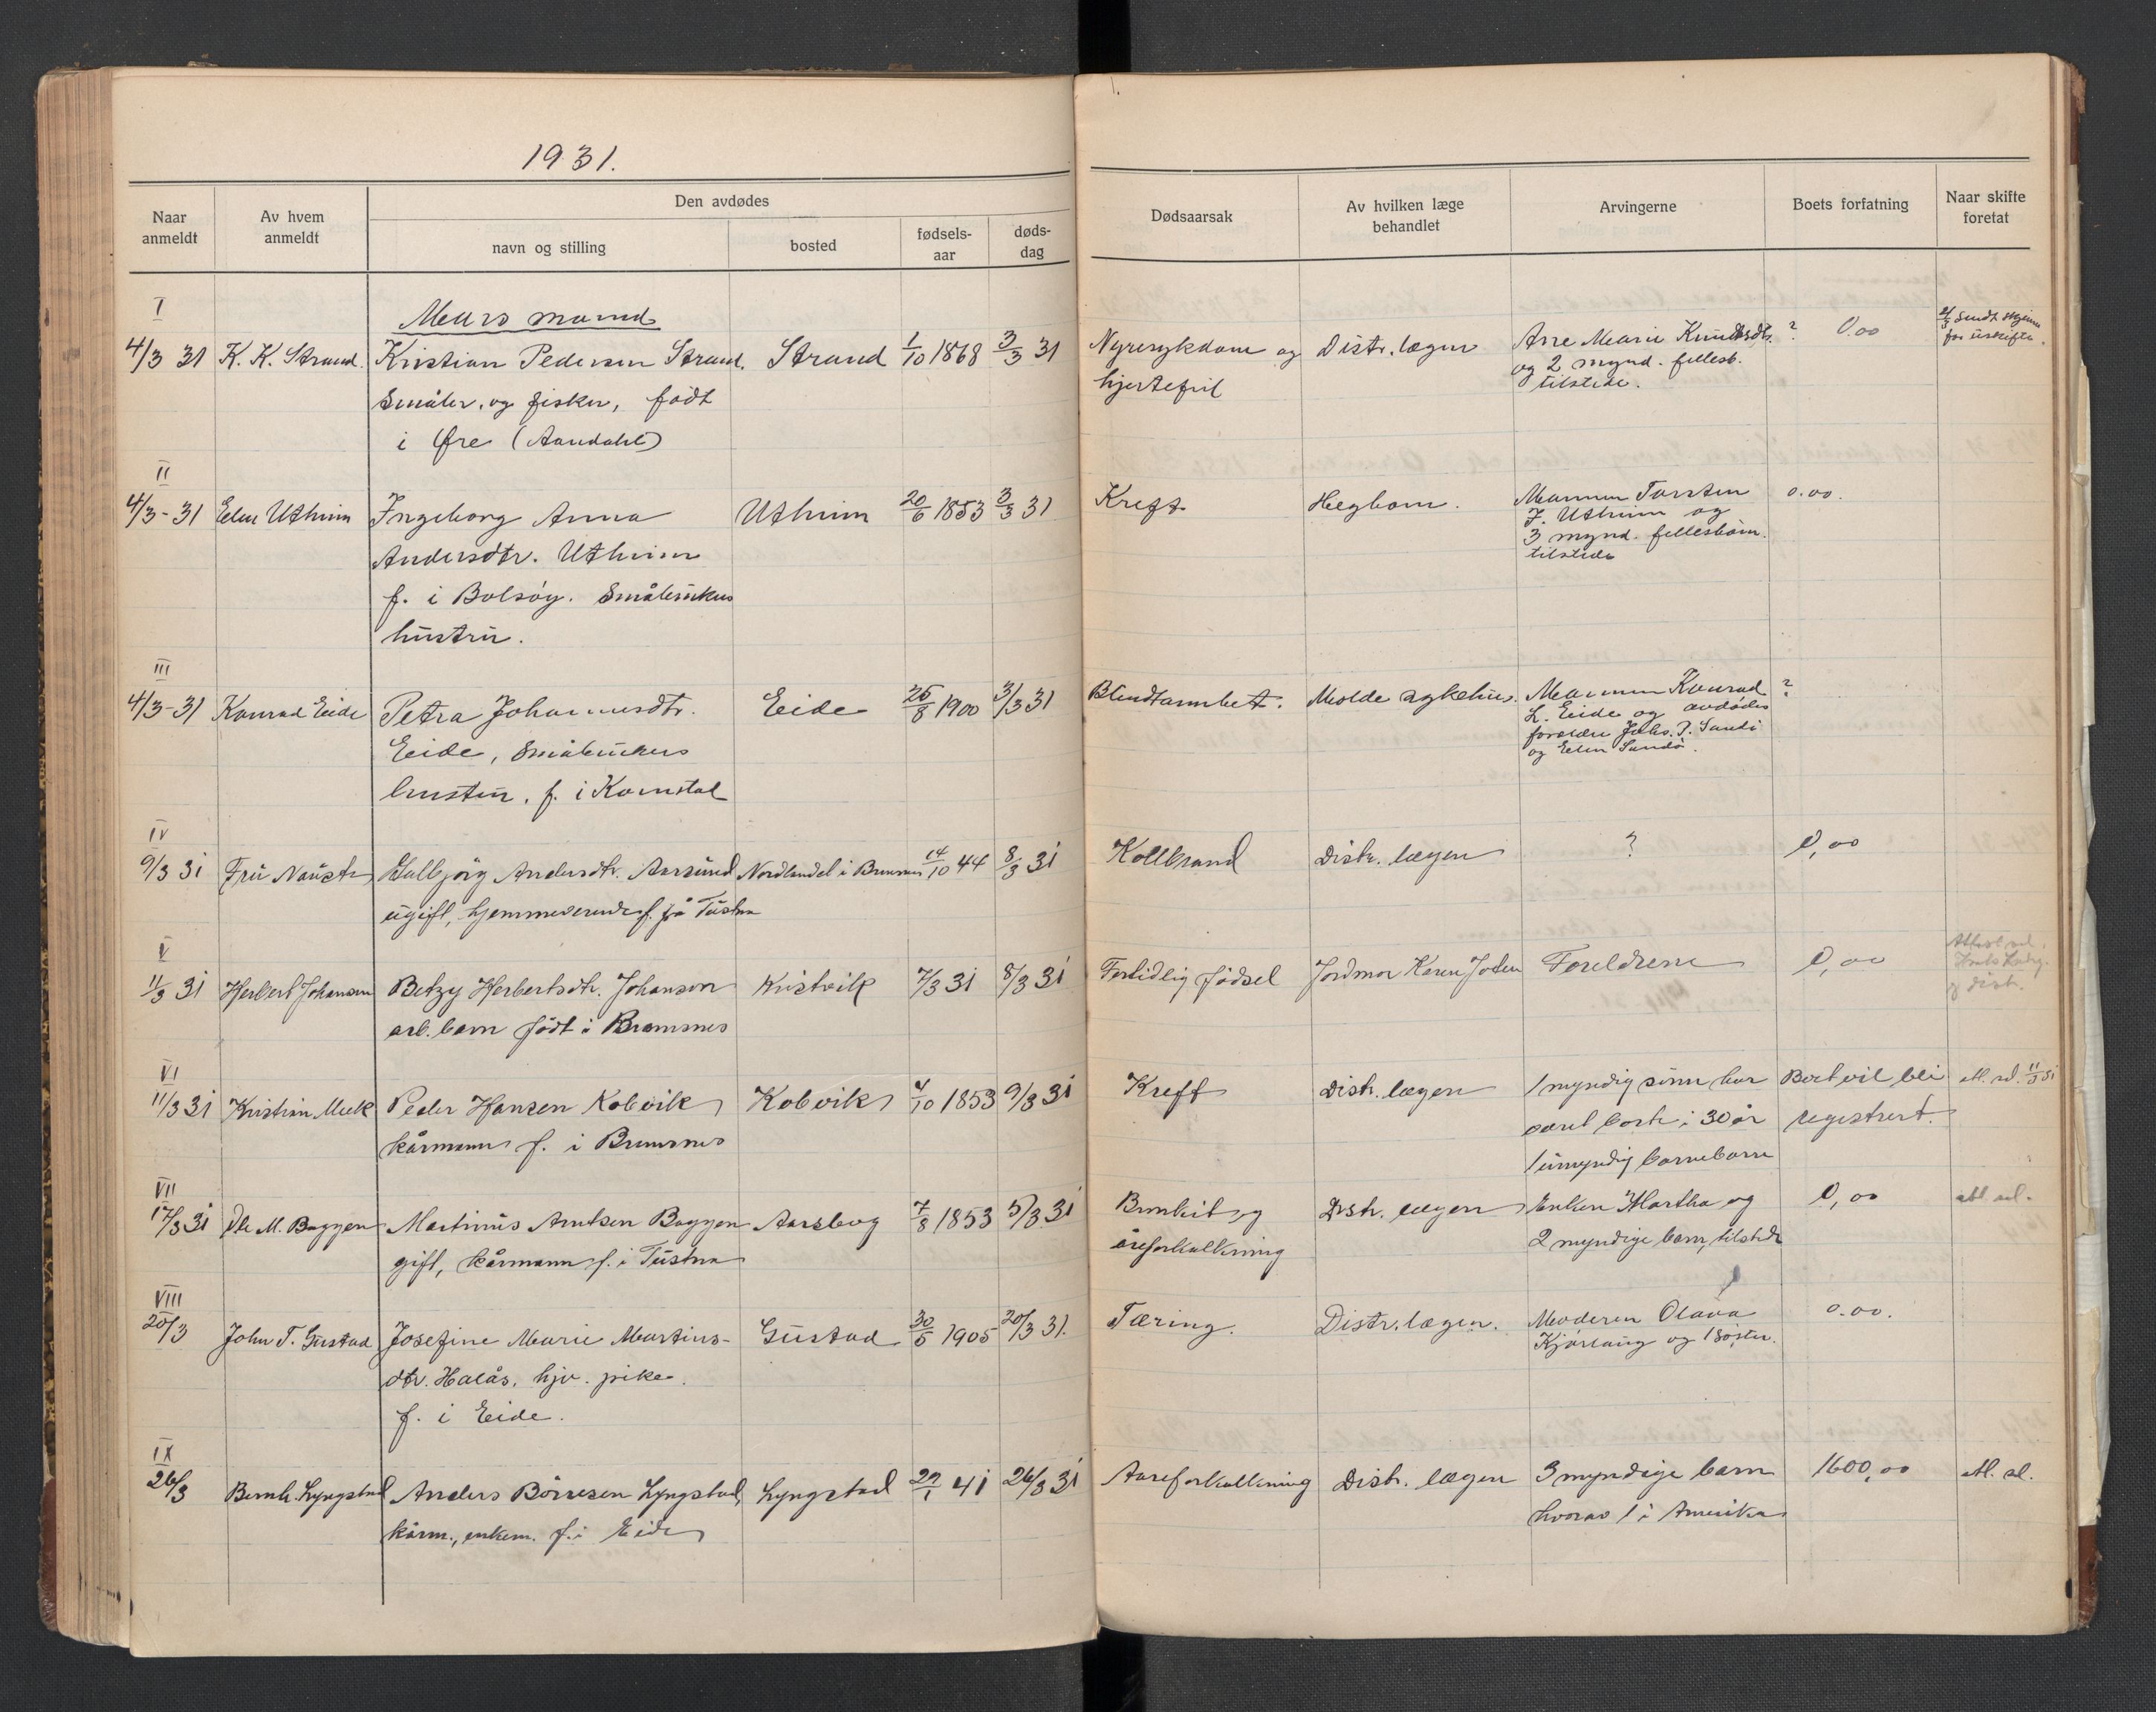 1931.
Naar anmeldt
Av hvem anmeldt
Den avdødes
navn og stilling
bosted
fødsels-aar
døds-dag
Dødsaarsak
Av hvilken læge behandlet
Arvingerne
Boets forfatning
Naar skifte foretat
Mars maaned
I
4/3 31 K. K. Strand. Kristian Pedersen Strand. Strand 1/10 1868 3/3 31 Nyresykdom og Distr. lægen Ane Marie Knudsdtr. ? 0,00
Småbr. og fisker, født hjertefeil og 2 mynd. fellesb.
i Øre (Aandahl) tilstede.
II
4/3-31 Elen Utheim Ingeborg Anna Utheim 20/6 1853 3/3 31 Kreft Hegbom. Mannen Torsten 0.00.
Andersdtr. Utheim J. Utheim og
f. i Bolsøy. Småbrukers 3 mynd. fellesbørn.
hustru. tilstede
III
4/3-31 Konrad Eide Petra Johannesdtr. Eide 26/8 1900 3/3 31 Blindtarmbet. Molde sykehus. Mannen Konrad ?
Eide, Småbrukers L. Eide og avdødes
hustru. f. i Kornstad foreldre Johs. P. Sandø
og Elen Sandø.
IV
9/3 31 Fru Naustr Gulbjørg Andersdtr. Aarsund Nordlandet i Bremsnes 14/10 44 8/3 31 Kollbrand Distr. lægen ? 0,00
ugift, hjemmeværende f. på Tustna
V
11/3 31 Herbert Johansen Betzy Herbertsdtr. Johansen Kristvik 7/3 31 8/3 31 Fortidlig fødsel Jordmor Karen Foreldrene 0,00
arb. barn født i Bremsnes
VI
11/3 31 Kristian Meek Peder Hansen Kobvik Kobvik 4/10 1853 9/3 31 Kreft Distr. lægen 1 myndig sønn har Boet vil bli att. ad. 11/3 31
kårmann f. i Bremsnes været borte i 30 år registrert.
1 umyndig barnebarn
VII
17/3 31 M. Bøggen Martinus Arntsen Bøggen Aarsbog 7/8 1853 5/3 31 Bronkit og Distr. lægen Enken Martha og 0,00
gift, kårmann f. i Tustna åreforkalkning 2 myndige barn, tilstede
VIII
20/3 John T. Gustad Josefine Marie Martins- Gustad 30/5 1905 20/3 31. Tæring. Distr. lægen. Moderen Olava 0.00.
dtr. Halås. hjv. pike. og 1 søster.
f. i Eide.
IX
26/3 Bernh. Lyngstad Anders Børresen Lyngstad, Lyngstad 29/1 41 26/3 31 Aareforkalkning Distr. lægen 3 myndige barn 1600,00
kårm., enkem. f. i Eide hvorav 1 i Amerika